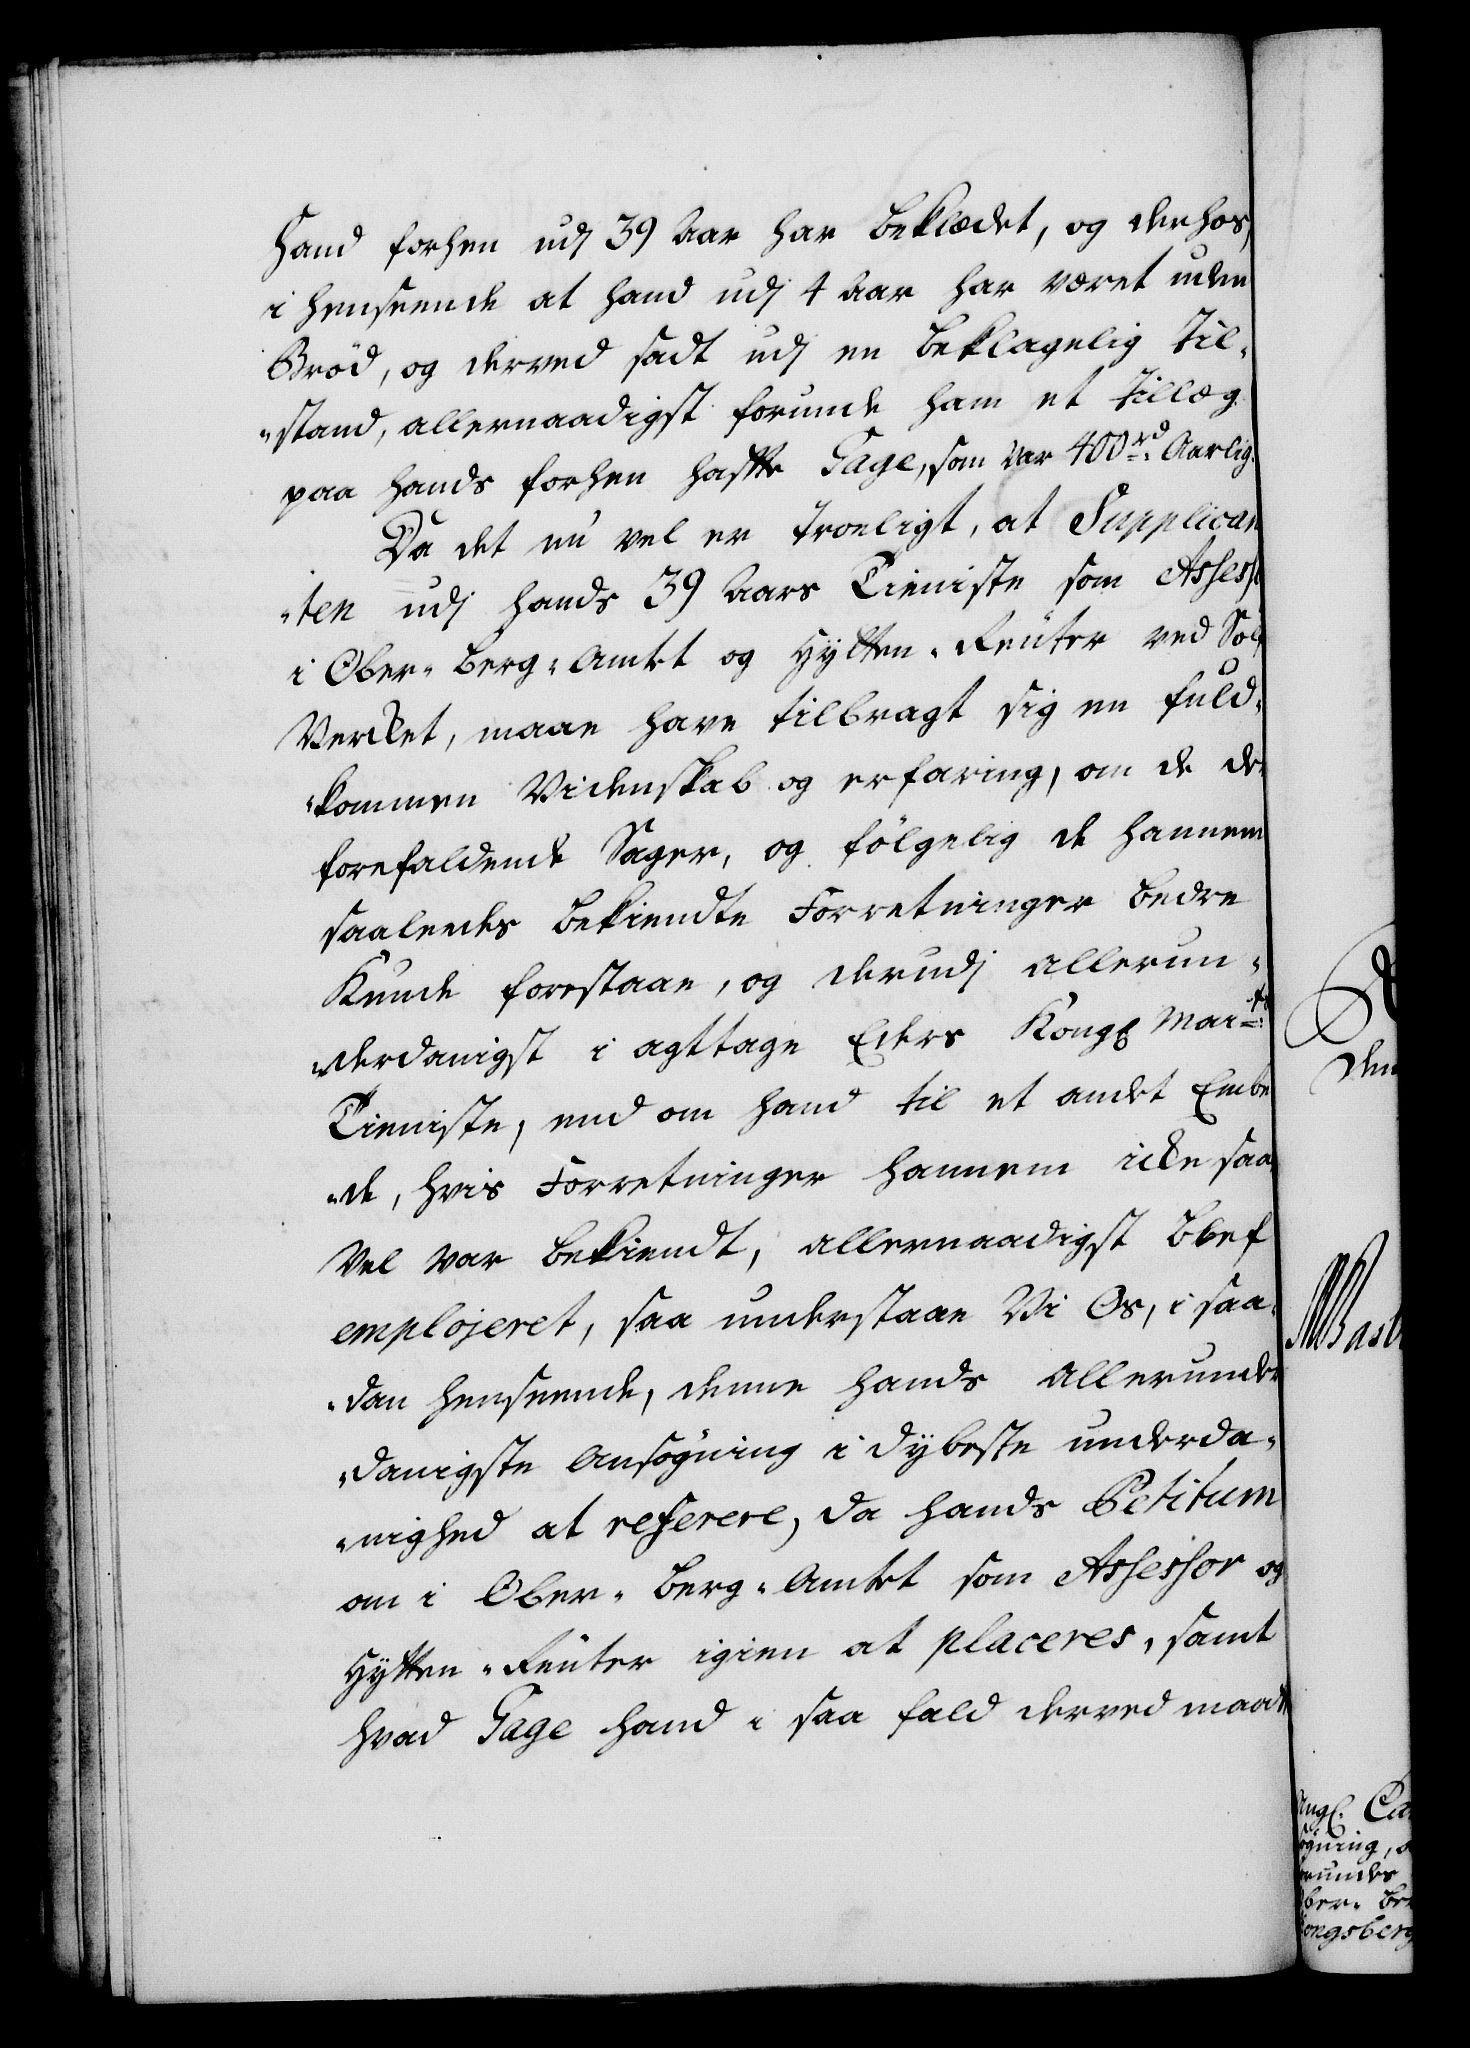 Hand forhen udj 39 Aar har beklædet, og derhos,
i henseende at hand udj 4 Aar har været uden
Brød, og derved sadt udj en beklagelig Til-
-stand, allernaadigst forunde ham et Tillæg
paa hands forhen hafte Gage, som var 400 rd Aarlig.
Da det nu vel er troeligt, at Supplican
-ten udj hands 39 Aars Tieniste som Assess
i Ober-Berg-Amtet og Hytten-Reuter ved Söl
Verket, maae have tilbragt sig en fuld-
-kommen Videnskab og erfaring, om de der
forefaldende Sager, og følgelig de hannem
saaledes bekiendte Forretninger bedre
Kunde forestaae, og derudj allerun-
-derdanigst i agttage Eders Kongl Mai ts
Tieniste, end om hand til et andet Embe
-de, hvis Forretninger hannem icke saa
vel var bekiendt, allernaadigst blef
emplojeret, saa understaae Vi Os, i saa-
-dan henseende, denne hands allerunder
-danigste Ansøgning i dybeste underda-
-nighed at referere, da hands Petitum
om i Ober-Berg-Amtet som Assessor og
Hytten-Reuter igien at placeres, samt
hvad Gage hand i saa fald derved maatte
den
Kongsberg